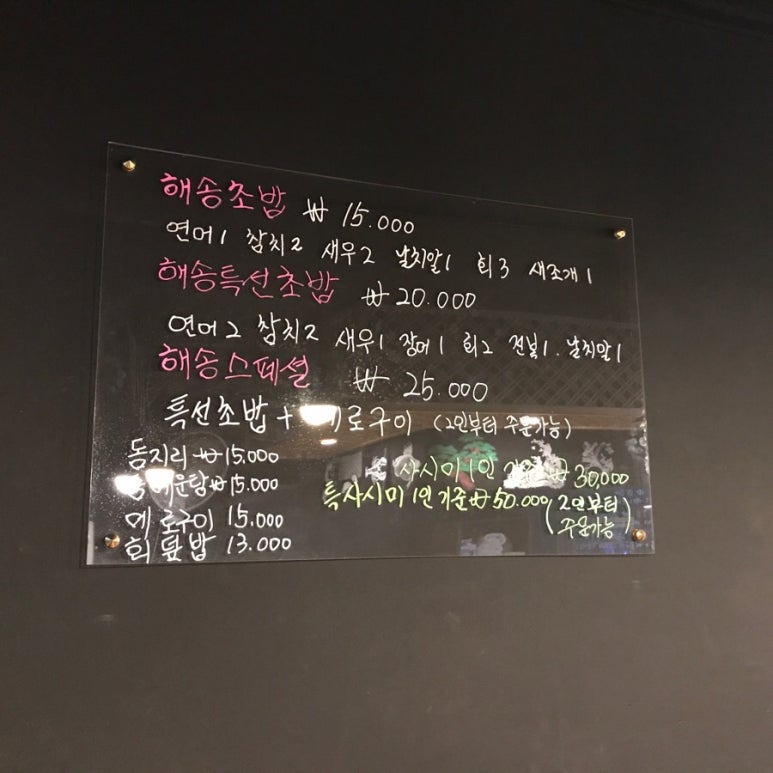 해송초밥 ₩ 15.000
연어1 참치2 새우2 날치알1 회3 새조개1
해송특선초밥 ₩ 20.000
연어2 참치2 새우1 장어1 회2 전복1. 날치알1
해송스페셜 ₩ 25.000
특선초밥 + 로구이 (2인부터 주문가능)
돔지리 ₩15,000
매운탕 ₩15.000
메로구이 15.000
회덮밥 13.000
사시미 1인 ₩ 30,000
특사시미 1인 기준 ₩ 50.000 (2인부터 주문가능)